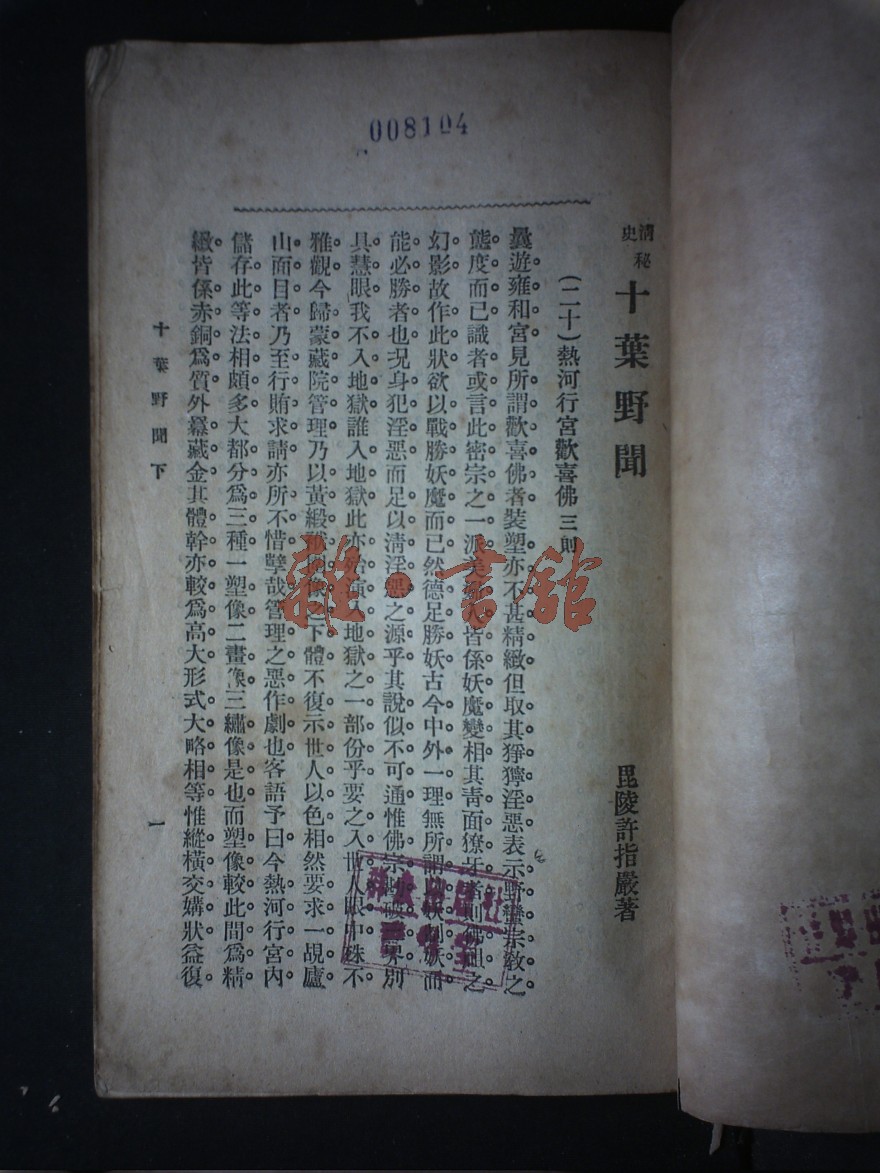 008104
清秘史 十葉野聞 毘陵許指嚴著
(二十)熱河行宮歡喜佛 三則
曩遊雍和宮見所謂歡喜佛者裝塑亦不甚精緻但取其猙獰淫惡表示野蠻宗敎之
態度而已識者或言此密宗之一派美人皆係妖魔變相其靑面獠牙者則佛之
幻影故作此狀欲以戰勝妖魔而已然德足勝妖古今中外一理無所謂妖妖而
能必勝者也況身犯淫惡而足以淸淫惡之源乎其說似不可通惟佛宗破界別
具慧眼我不入地獄誰入地獄此亦演入地獄之一部份乎要之入世人眼中殊不
雅觀今歸蒙藏院管理乃以黃緞圍像之下體不復示世人以色相然要求一覘廬
山面目者乃至行賄求請亦所不惜孽哉管理之惡作劇也客語予曰今熱河行宮內
儲存此等法相頗多大都分爲三種一塑像二畫像三繡像是也而塑像較此間爲精
緻皆係赤銅爲質外羃藏金其體幹亦較爲高大形式大略相等惟縱橫交媾狀益復
十葉野聞下
一
雜·書館